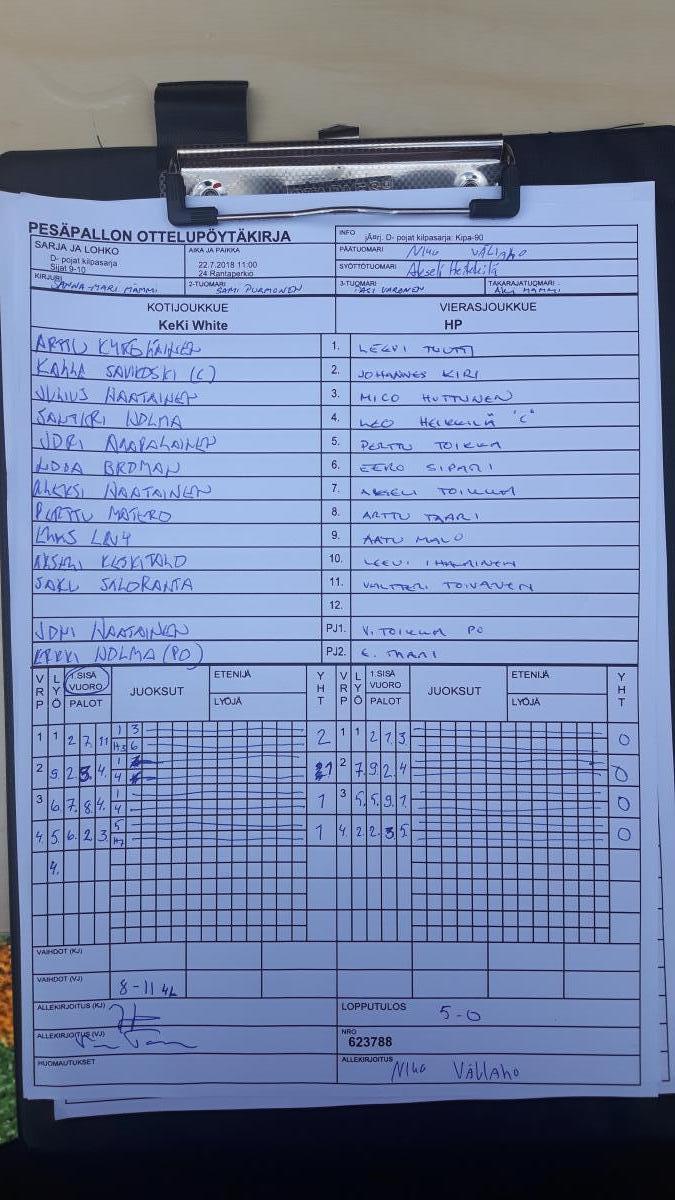 PESÄPALLON OTTELUPÖYTÄKIRJA
INFO jÄrj. D- pojat kilpasarja: Kipa-90
SARJA JA LOHKO
D- pojat kilpasarja
Sijat 9-10
AIKA JA PAIKKA
22.7.2018 11:00
24 Rantaperkiö
PÄÄTUOMARI Niko VÄLLAHO
SYÖTTÖTUOMARI Akseli Heikkilä
KIRJURI SANNA-MARI MÄMMI
2-TUOMARI SAMI PURMONEN
3-TUOMARI PASI VARONEN
TAKARAJATUOMARI AKI MÄMMI
KOTIJOUKKUE VIERASJOUKKUE
KeKi White HP
ARTTU KYRÖLÄINEN 1. LEEVI TUUTTI
KALLE SAVIKOSKI (C) 2. JOHANNES KIRI
JULIUS HAATAINEN 3. MICO HUTTUNEN
SANTERI NOLMA 4. LEO HEIKKILÄ "C"
5. PERTTU TOIKKA
BROMAN 6. EERO SIPARI
ALEKSI HAATAINEN 7. AKSELI TOIKKA
PERTTU MATERO 8. ARTTU TAARI
9. AATU MALO
KESKITALO 10. LEEVI
SAKU SALORANTA 11. VALTTERI TOIVANEN
12.
JONI HAATAINEN PJ1. V. TOIKKA PO
ERKKI NOLMA (PO) PJ2. E. TAARI
VRP LYÖ 1.SISÄ VUORO PALOT JUOKSUT ETENIJÄ LYÖJÄ YHT VRP LYÖ 1.SISÄ VUORO PALOT JUOKSUT ETENIJÄ LYÖJÄ YHT
1 1 2 7. 11 1 3 2 1 1 2 1 3. 0
6
2 9. 2 3. 4. 1 1 2 7. 9. 2. 4 0
4
3 6. 7. 8. 4. 1 1 3 5. 5. 9. 1. 0
4
4. 5. 6. 2 3. 5 1 4. 2. 2. 3 5. 0
4.
VAIHDOT (KJ)
VAIHDOT (VJ) 8-11 4L
ALLEKIRJOITUS (KJ)
LOPPUTULOS 5-0
ALLEKIRJOITUS (VJ)
NRO
623788
HUOMAUTUKSET
ALLEKIRJOITUS Niko Vällaho